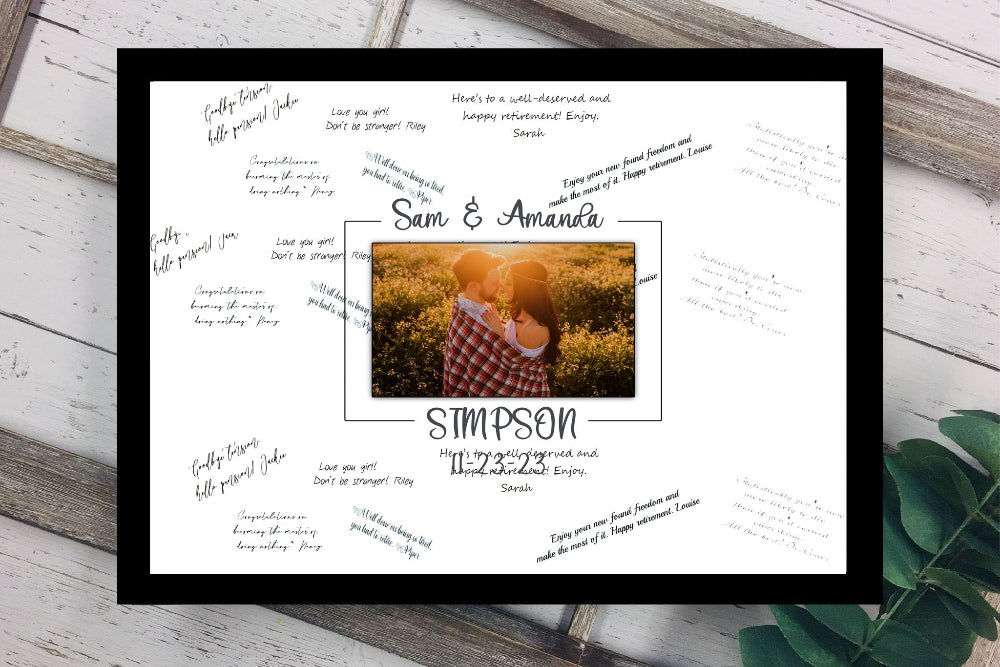 Goodbye tension
hello pension! Jackie
Love you girl!
Don't be stranger! Riley
Here's to a well-deserved and
happy retirement! Enjoy.
Sarah
Congratulations on
becoming the master of
doing nothing" Nancy
Well done on being so tired,
you had to retire. Piper
Enjoy your new found freedom and
make the most of it. Happy retirement. Louise
Statistically you're
more likely to die
than if you'd
Sam & Amanda
Goodby
hello pension! Jack
Love you girl!
Don't be stranger! Riley
Louise
Congratulations on
becoming the master of
doing nothing" Nancy
Well done on being
you had to retire.
Statistically you're
more likely to die
than if you'd
All the best!
SIMPSON
11-23-23
Goodbye tension
hello pension! Jackie
Love you girl!
Don't be stranger! Riley
Here's to a well-deserved and
happy retirement! Enjoy.
Sarah
Congratulations on
becoming the master of
doing nothing" Nancy
Well done on being so tired,
you had to retire. Piper
Enjoy your new found freedom and
make the most of it. Happy retirement. Louise
Statistically you're
more likely to die
than if you'd
All the best!